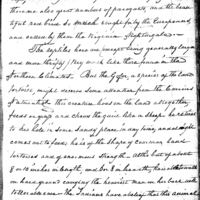 there are also great numbers of paroquets and the beau-
tiful bird so much sought for by the Europeans
and called by them the Virginia Nightingale.
The reptiles here are, except being generally larger
and more thrifty, very much like those found in the
Northern Climates. But the Gofer, a species of the land
tortoise, might deserve some attention from the lovers of
Natural. This creature lives on the land altogether,
feeds on grass and chews the quid like a sheep. he retires
to his hole in some sandy place, in day time, and at night
comes out to feed. he is of the shape of common land
tortoises and of enormous strength. Altho but of about
8 or 10 inches in length, and
on hard ground carrying the heaviest man on his back with
little The Indians have a that this animal